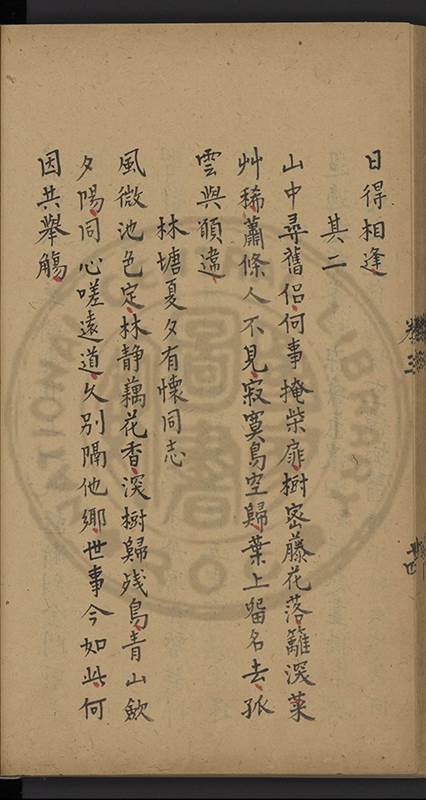 日得相逢
其二
山中尋舊侶何事掩柴扉樹密藤花落籬深菜
艸稀蕭條人不見寂寞鳥空歸葉上留名去孤
雲與願違
林塘夏夕有懷同志
風微池色定林静藕花香深樹歸残鳥青山歛
夕陽同心嗟遠道久别隔他鄉世事今如此何
因共舉觴
卷三
廿四